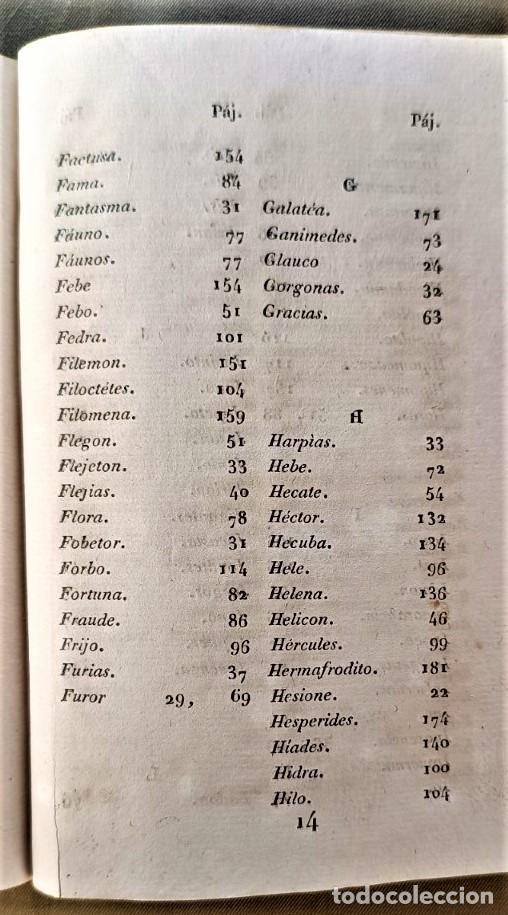 Páj.
Factusa. 154
Fama. 84
Fantasma. 31
Fáuno. 77
Fáunos. 77
Febe 154
Febo. 51
Fedra. 101
Filemon. 151
Filoctétes. 104
Filomena. 159
Flegon. 51
Flejeton. 33
Flejias. 40
Flora. 78
Fobetor. 31
Forbo. 114
Fortuna. 82
Fraude. 86
Frijo. 96
Furias. 37
Furor 29, 69
Páj.
G
Galatéa. 171
Ganimedes. 73
Glauco 24
Gorgonas. 32
Gracias. 63
H
Harpias. 33
Hebe. 72
Hecate. 54
Héctor. 132
Hecuba. 134
Hele. 96
Helena. 136
Helicon. 46
Hércules. 99
Hermafrodito. 181
Hesione. 22
Hesperides. 174
Híades. 140
Hidra. 100
Hilo. 104
14
todocoleccion